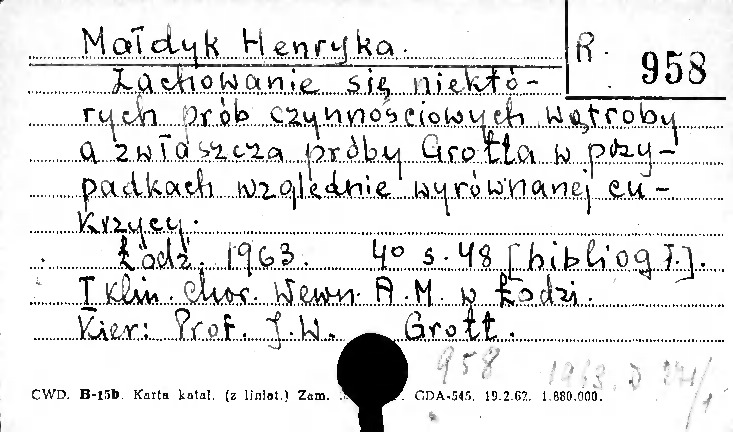 Małdyk Henryka.
R. 958
Zachowanie się niektó-
rych prób czynnościowych wątroby
a zwłaszcza próby Grotta w przy-
padkach względnie wyrównanej cu-
krzycy.
Łódź. 1963. 4° s. 48 [bibliogr.].
I Klin. chor. Wewn. A.M. w Łodzi.
Kier: Prof. J.W. Grott.
958 1963
CWD. B-15b. Karta katal. (z liniat.) Zam. GDA-545. 19.2.62. 1.880.000.